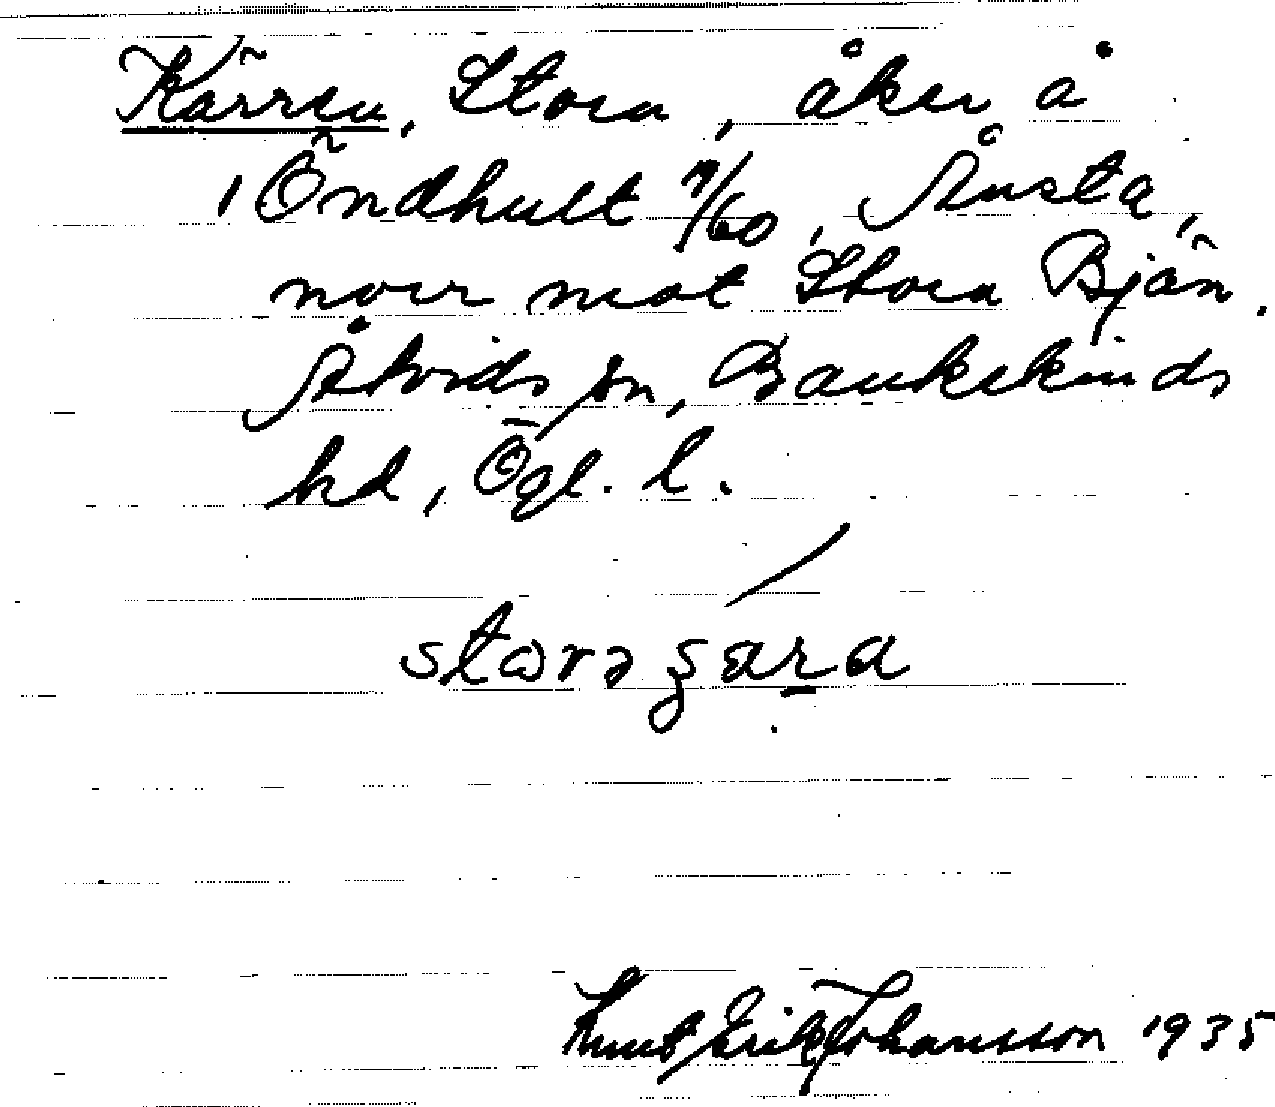 Kärren, Stora, åker å
1 Öndhult 7/60, Åusta,
norr mot Stora Bjän.
Åtvids sn, Bankekinds
hd, Ögl. l.
Knut Erik Johansson 1935